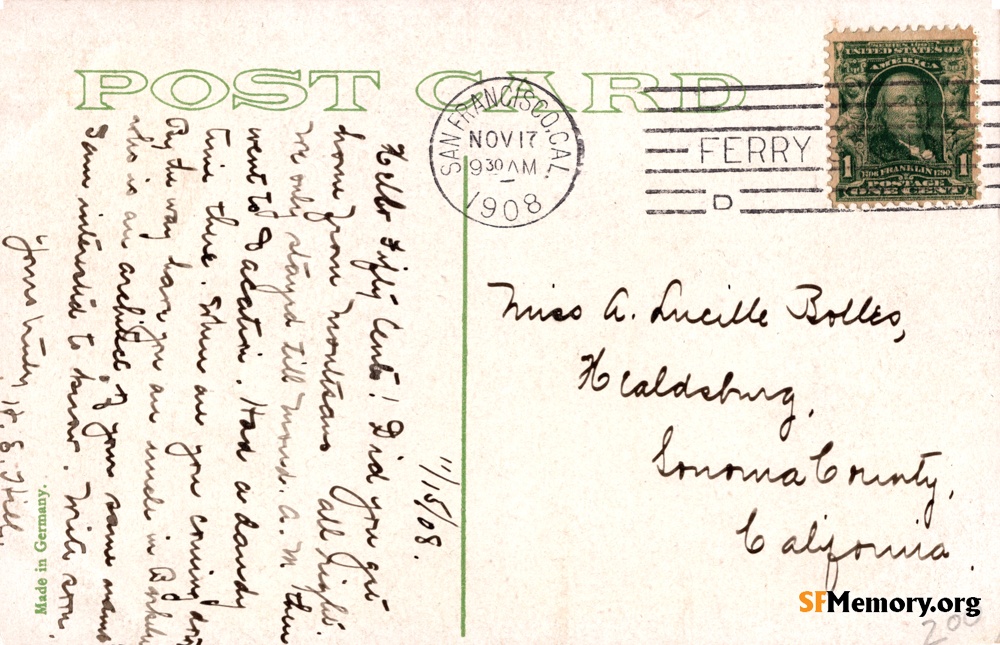 POST CARD
SAN FRANCISCO, CAL.
NOV 17
9 30 AM
1908
FERRY
D
SERIES 1902
UNITED STATES OF
AMERICA
1 1
1706 FRANKLIN 1790
POSTAGE
ONE CENT
11/15/08.
Hello Fifty Cents! Did you get
home from all right.
We only stayed till mond. A.M. then
went to Vacation. Had a dandy
time there. When are you coming
By the way have you an uncle in
who is an architect of your same name
I am interested to know. Write soon.
Yours truly
Made in Germany.
Miss A. Lucille Bolles,
Healdsburg,
Sonoma County,
California
SFMemory.org
200